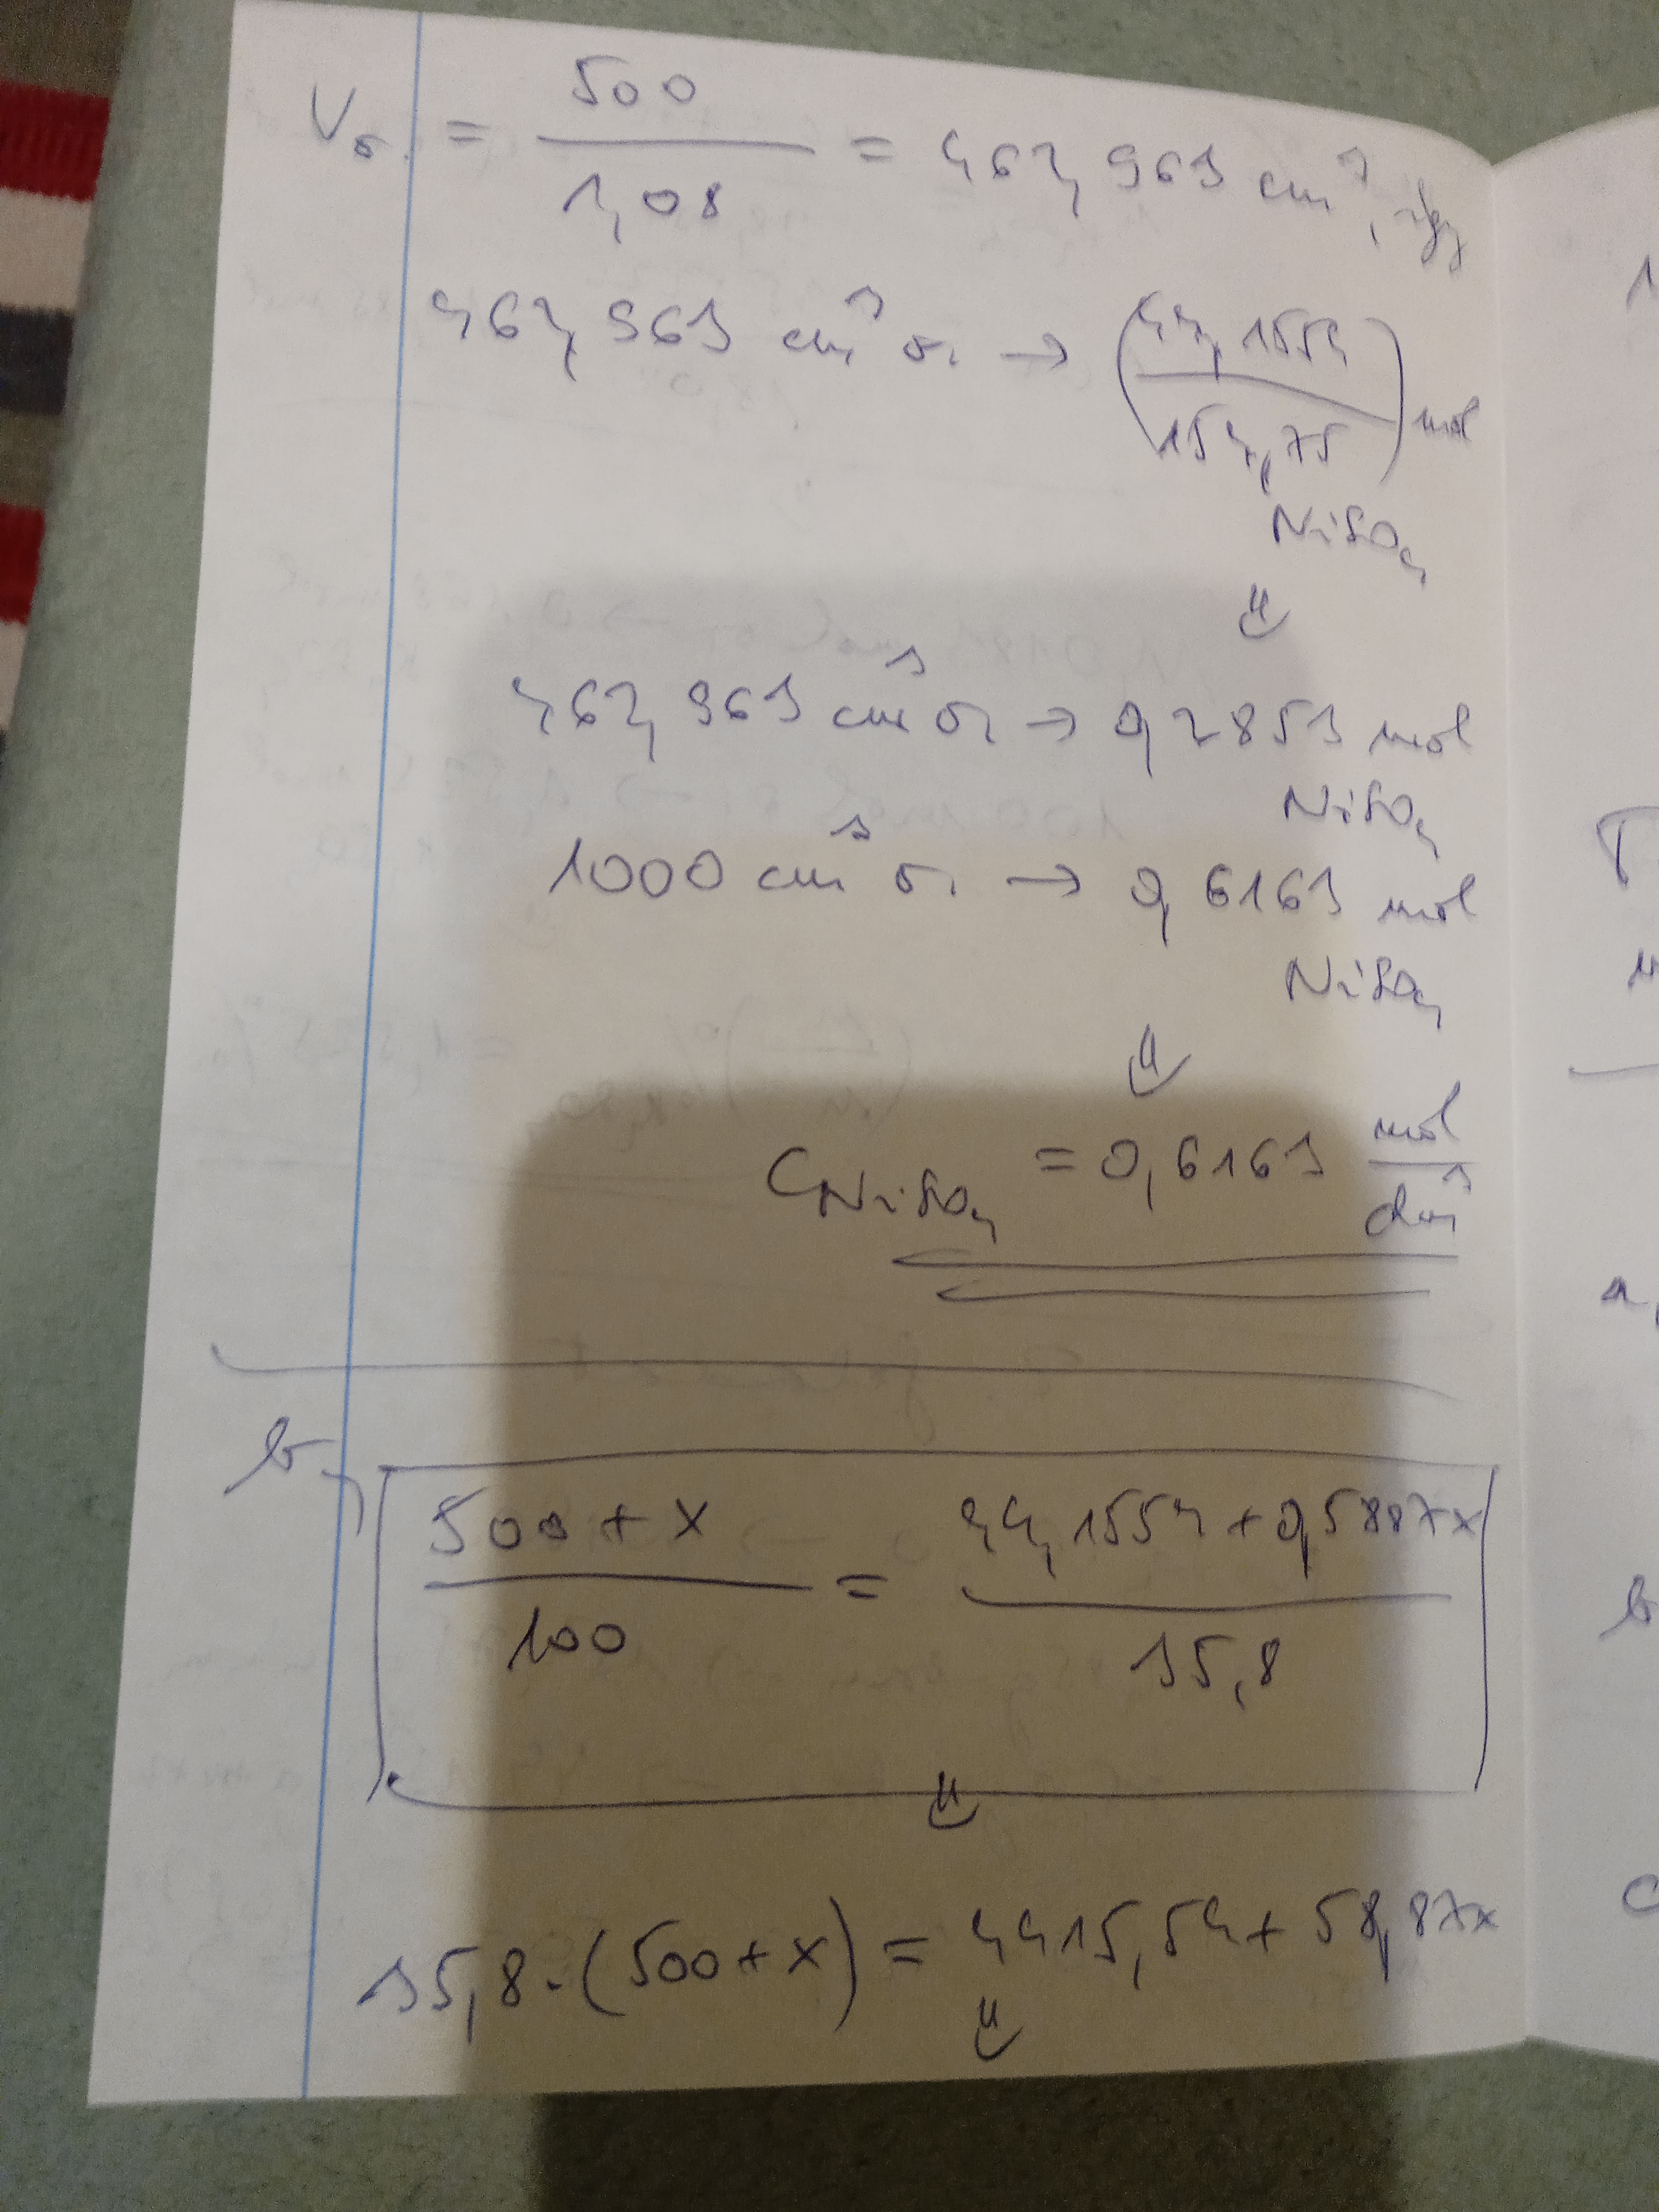 Vo. = 500 / 1,08 = 462,963 cm³, így
462,963 cm³ o. → (44,1554 / 154,75) mol
NiSO₄
⇓
462,963 cm³ o. → 0,2853 mol
NiSO₄
1000 cm³ o. → 0,6163 mol
NiSO₄
⇓
C NiSO₄ = 0,6163 mol / dm³
b, (500 + x) / 100 = (44,1554 + 0,5887x) / 35,8
⇓
35,8 · (500 + x) = 4415,54 + 58,87x
⇓